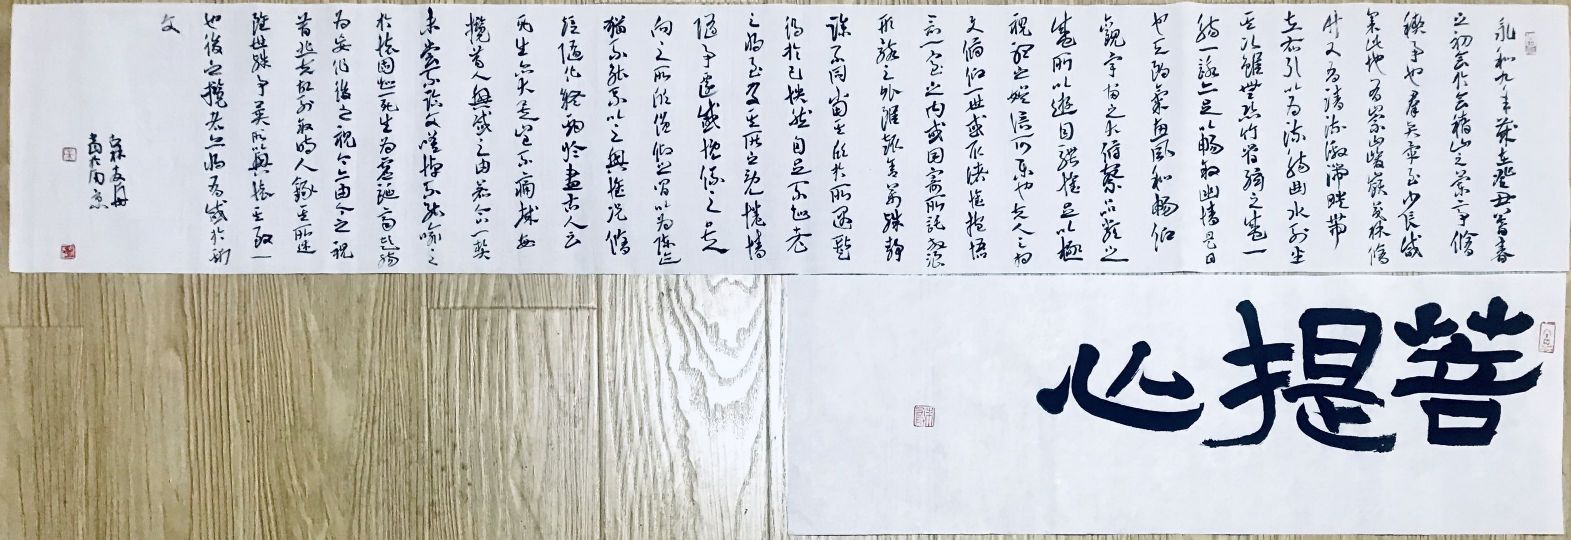 永和九年歲在癸丑暮春
之初會於會稽山之蘭亭脩
禊事也群賢畢至少長咸
集此地有崇山峻嶺茂林脩
竹又有清流激湍映帶
左右引以為流觴曲水列坐
其次雖無絲竹管弦之盛一
觴一詠亦足以暢敘幽情是日
也天朗氣清惠風和暢仰
觀宇宙之大俯察品類之
盛所以遊目騁懷足以極
視聽之娛信可樂也夫人之相
與俯仰一世或取諸懷抱悟
言一室之內或因寄所託放浪
形骸之外雖趣舍萬殊靜
躁不同當其欣於所遇暫
得於己快然自足不知老
之將至及其所之既惓情
隨事遷感慨係之矣
向之所欣俛仰之間以為陳迹
猶不能不以之興懷況脩
短隨化終期於盡古人云
死生亦大矣豈不痛哉每
攬昔人興感之由若合一契
未嘗不臨文嗟悼不能喻之
於懷固知一死生為虛誕齊彭殤
為妄作後之視今亦由今之視
昔悲夫故列敘時人錄其所述
雖世殊事異所以興懷其致一
也後之攬者亦將有感於斯
文
書於南京
菩提心